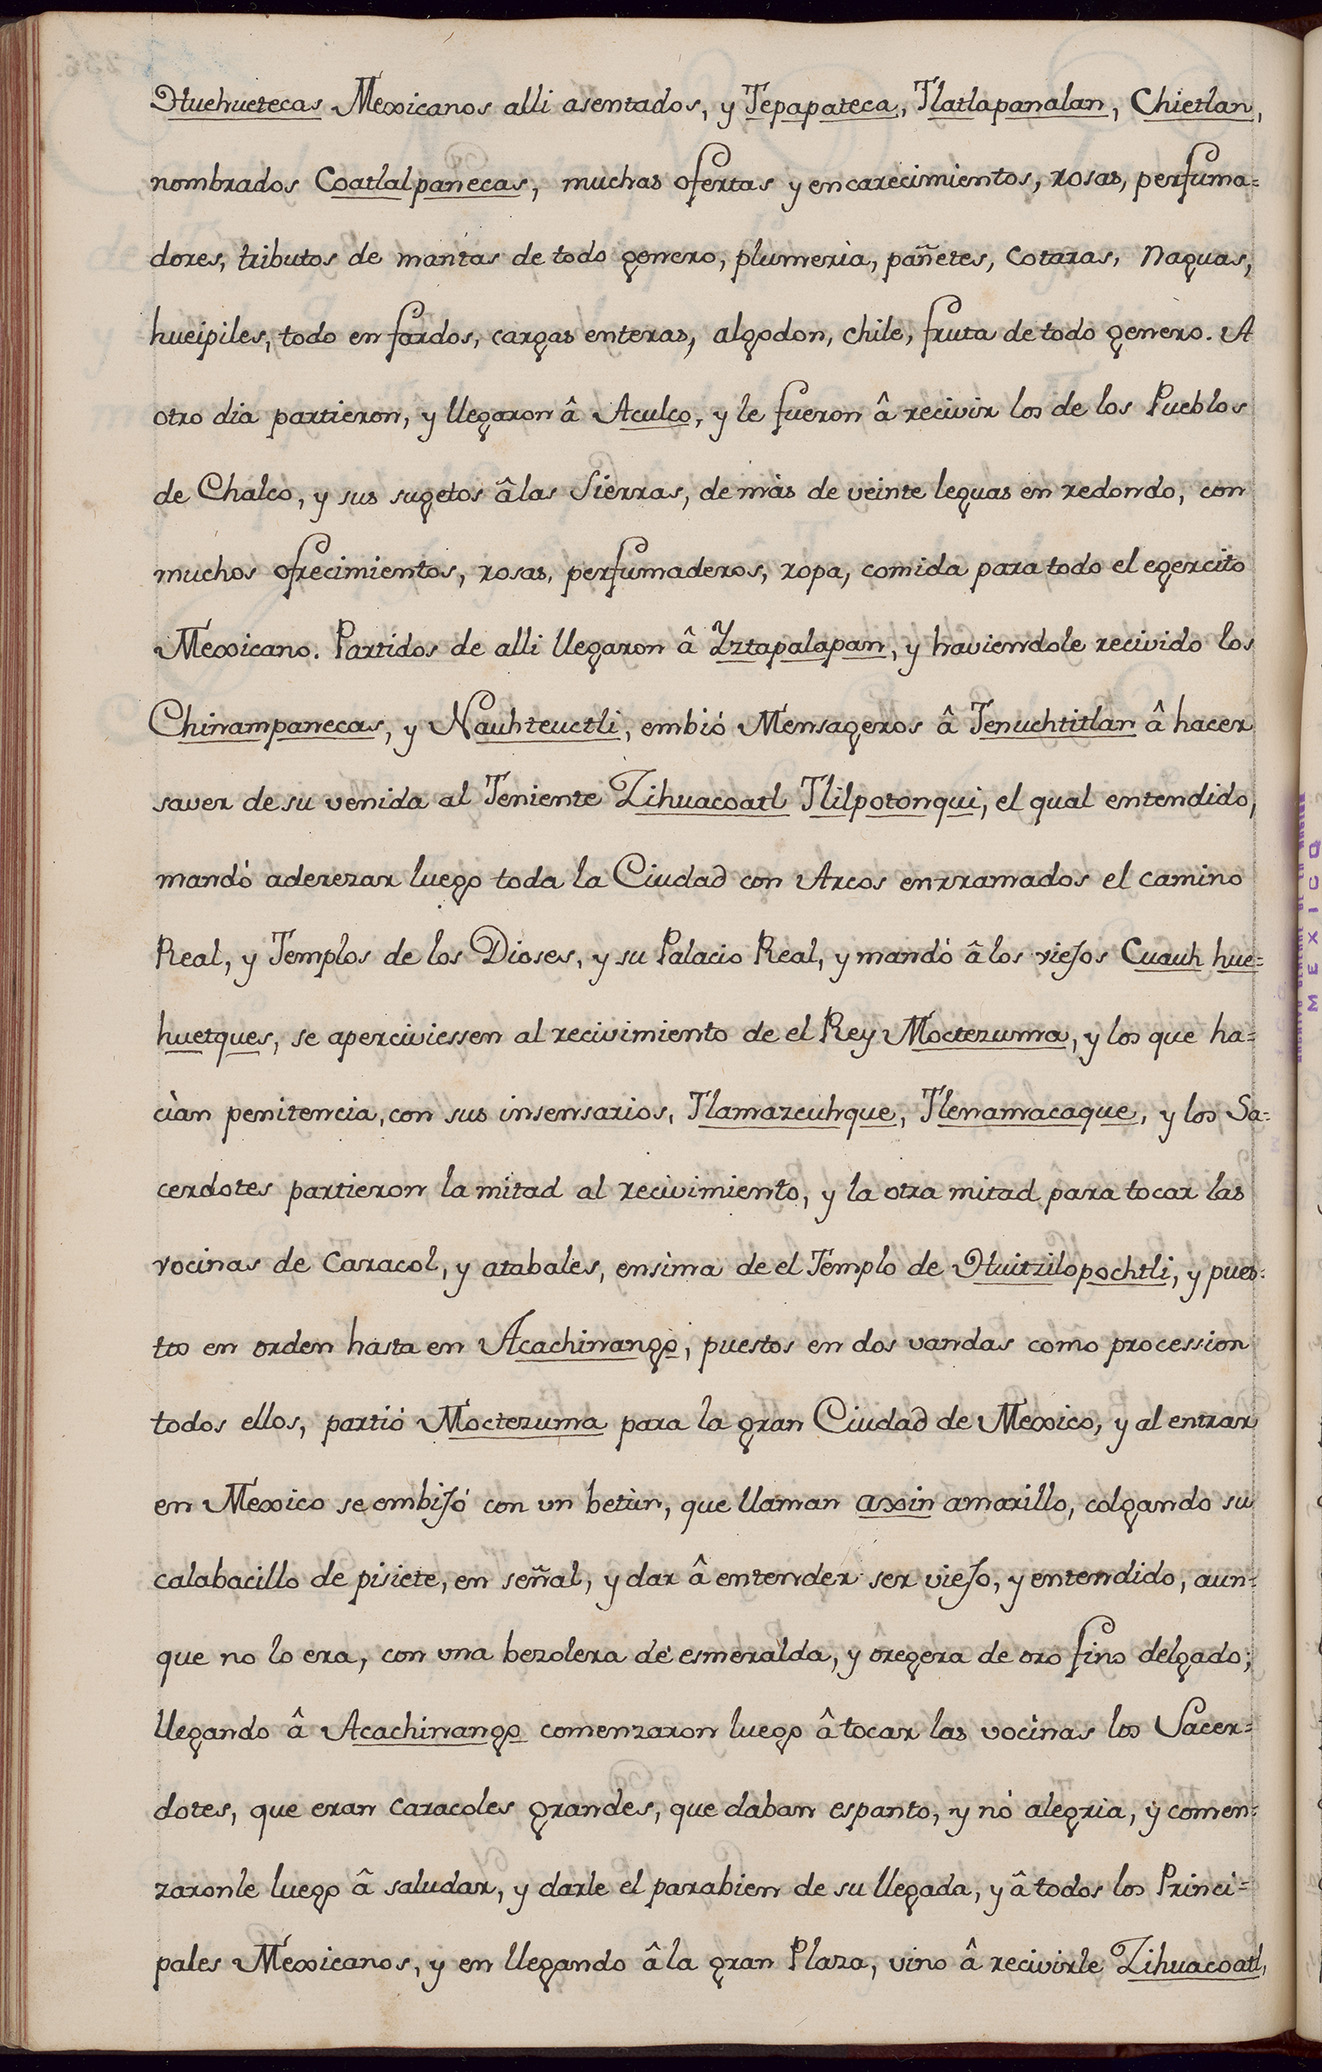 Huehuetecas Mexicanos alli asentados, y Tepapateca, Tlatlapanalan, Chietlan,
nombrados Coatlalpanecas, muchas ofertas y encarecimientos, rosas, perfuma=
dores, tributos de mantas de todo genero, plumerìa, pañetes, cotaras, naguas,
hueipiles, todo en fardos, cargas enteras, algodon, chile, fruta de todo genero. A
otro dia partieron, y llegaron â Aculco, y le fueron â recivir los de los Pueblos
de Chalco, y sus sugetos âlas Sierras, de màs de veinte leguas en redondo, con
muchos ofrecimientos, rosas, perfumaderos, ropa, comida para todo el egercito
Mexicano. Partidos de alli llegaron â Yztapalapan, y haviendole recivido los
Chinampanecas, y Nauhteuctli, embió Mensageros â Tenuchtitlan â hacer
saver de su venida al Teniente Zihuacoatl Tlilpotonqui, el qual entendido,
mandó aderezar luego toda la Ciudad con Arcos enrramados el camino
Real, y Templos de los Dioses, y su Palacio Real, y mandó â los viejos Cuauh hue=
huetques, se aperciviessen al recivimiento de el Rey Moctezuma, y los que ha=
cìan penitencia, con sus insensarios, Tlamazcuhque, Tlenamacaque, y los Sa=
cerdotes partieron la mitad al recivimiento, y la otra mitad para tocar las
vocinas de Caracol, y atabales, ensima de el Templo de Huitzilopochtli, y pues=
tos en orden hasta en Acachinango, puestos en dos vandas como procession
todos ellos, partió Moctezuma para la gran Ciudad de Mexico, y al entrar
en Mexico se embijó con un betùn, que llaman axin amarillo, colgando su
calabacillo de pisiete, en señal, y dar â entender ser viejo, y entendido, aun=
que no lo era, con una bezolera de esmeralda, y oregera de oro fino delgado;
llegando â Acachinango comenzaron luego â tocar las vocinas los Sacer=
dotes, que eran caracoles grandes, que daban espanto, y nó alegria, y comen=
zaronle luego â saludar, y darle el parabien de su llegada, y â todos los Princi=
pales Mexicanos, y en llegando â la gran Plaza, vino â recivirle Zihuacoatl,
MEXICO